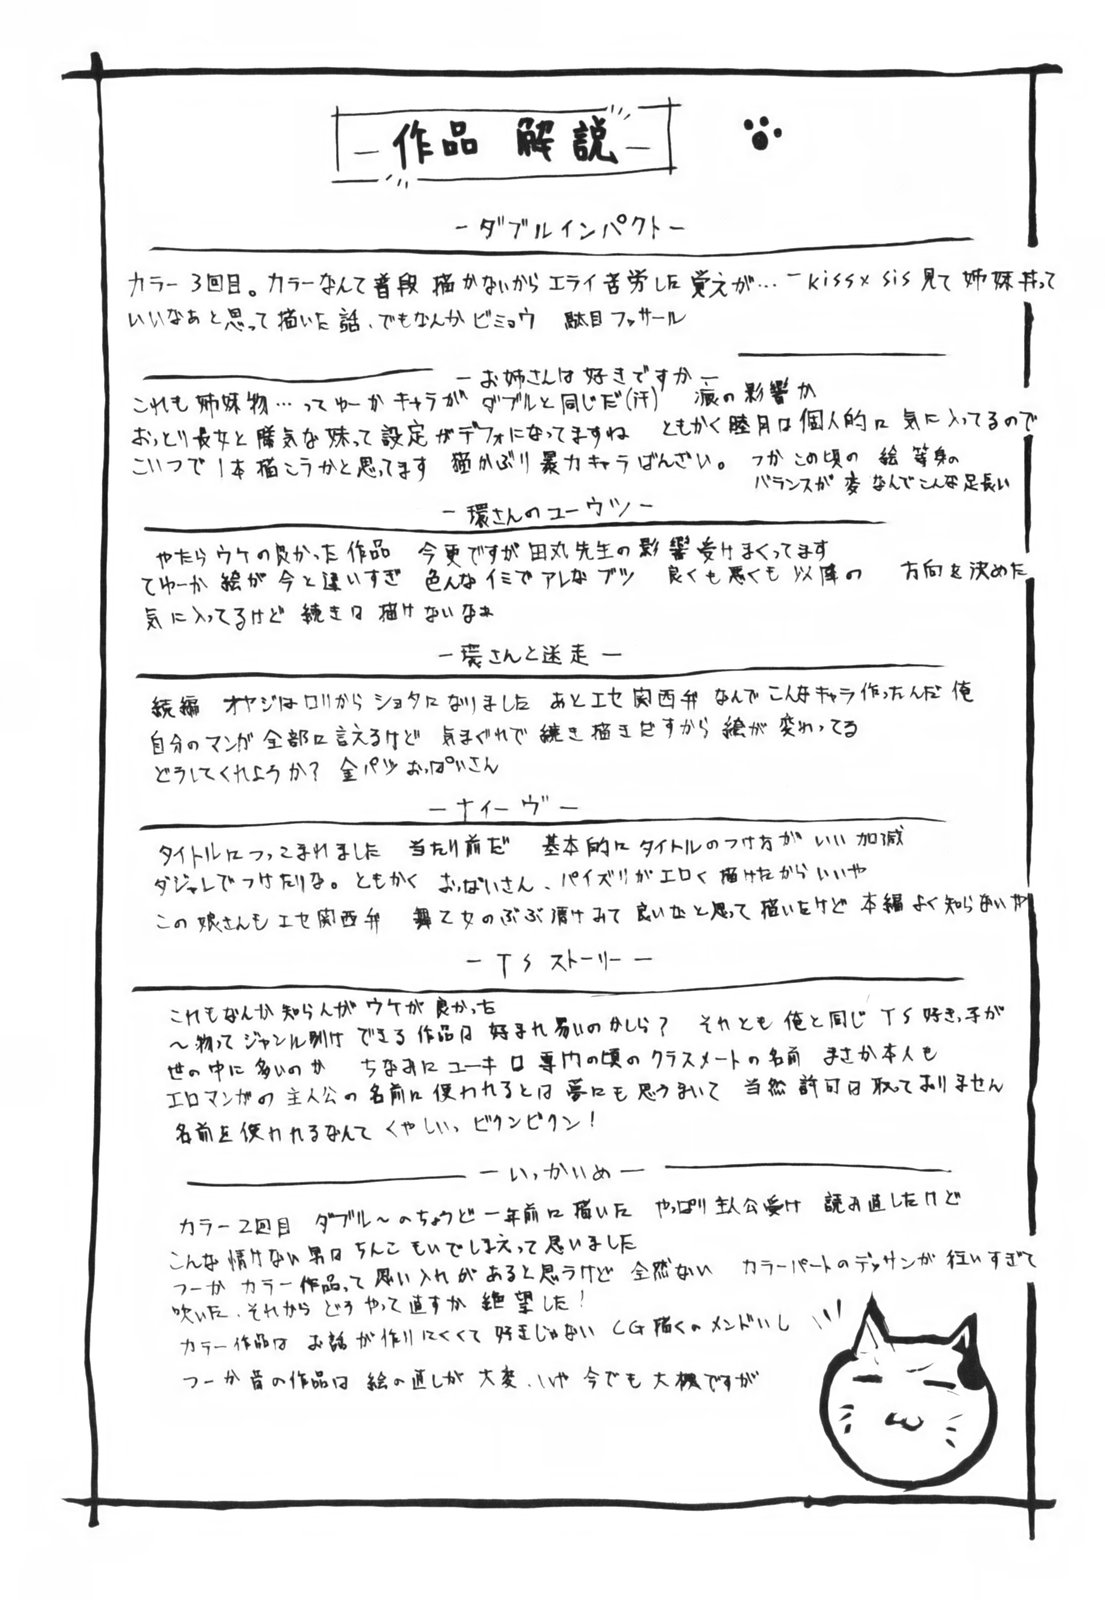 作品 解説
－ダブルインパクト－
カラー3回目。カラーなんて普段描かないからエライ苦労した覚えが… kiss×sis見て姉妹丼って
いいなぁと思って描いた話、でもなんかビミョウ 駄目ファサール
－お姉さんは好きですか－
これも姉妹物…ってゆーかキャラがダブルと同じだ(汗) 痕の影響か
おっとり長女と勝気な妹って設定がデフォになってますね ともかく睦月は個人的に気に入ってるので
こいつで1本描こうかと思ってます 猫かぶり暴力キャラばんざい。 つかこの頃の絵等身の
バランスが変 なんでこんな足長い
－環さんのユーウツ－
やたらウケの良かった作品 今更ですが田丸先生の影響受けまくってます
てゆーか絵が今と違いすぎ 色んなイミでアレなブツ 良くも悪くも以降の 方向を決めた
気に入ってるけど続きは描けないなぁ
－環さんと迷走－
続編 オヤジはロリからショタになりました あとエセ関西弁 なんでこんなキャラ作ったんだ俺
自分のマンガ全部に言えるけど 気まぐれで続き描きだすから絵が変わってる
どうしてくれようか? 金パツおっぱいさん
－ナイーヴ－
タイトルにつっこまれました 当たり前だ 基本的にタイトルのつけ方がいい加減
ダジャレでつけたりな。ともかく おっぱいさん、パイズリがエロく描けたからいいや
この娘さんもエセ関西弁 舞乙女のぶぶ漬けみて良いなと思って描いたけど本編よく知らないや
－TSストーリー－
これもなんか知らんがウケが良かった
～物ってジャンル別けできる作品は好まれ易いのかしら? それとも俺と同じTS好きっ子が
世の中に多いのか ちなみにユーキは専門の頃のクラスメートの名前 まさか本人も
エロマンガの主人公の名前に使われるとは夢にも思うまいて 当然許可は取っておりません
名前を使われるなんて くやしいっ ビクンビクン!
－いっかいめ－
カラー2回目 ダブル～のちょうど一年前に描いた やっぱり主人公受け 読み直したけど
こんな情けない男はちんこもいでしまえって思いました
つーかカラー作品って思い入れがあると思うけど全然ない カラーパートのデッサンが狂いすぎて
吹いた、それからどうやって直すか絶望した!
カラー作品は お話が作りにくくて好きじゃない CG描くのメンドいし
つーか昔の作品は絵の直しが大変、いや今でも大概ですが